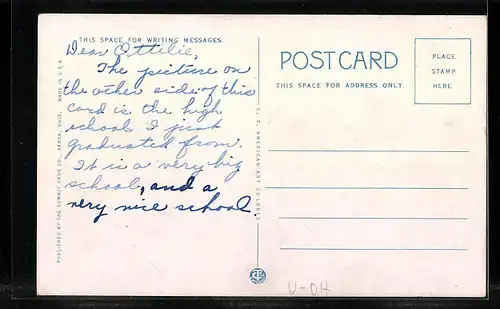 THIS SPACE FOR WRITING MESSAGES.
Dear Ottilie,
The picture on
the other side of this
card is the high
school I just
graduated from.
It is a very big
school, and a
very nice school.
PUBLISHED BY THE SUMMIT DRUG CO., AKRON, OHIO. MADE IN U.S.A.
C. T. AMERICAN ART COLORED
POST CARD
THIS SPACE FOR ADDRESS ONLY.
PLACE
STAMP
HERE
U-OH